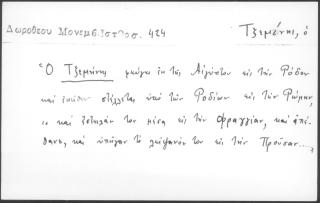 Δωροθέου Μονεμβ. Ιστορ. 424
Τζεμένης, ὁ
Ὁ Τζεμένης φεύγει ἐκ τῆς Αἰγύπτου εἰς τὴν Ρόδον
καὶ ἐκεῖθεν στέλλεται ὑπὸ τῶν Ροδίων εἰς τὴν Ρώμην,
" καὶ ἔστειλάν τον μέσα εἰς τὴν Φραγγίαν, καὶ ἀπέ-
θανε, καὶ ὑπῆγαν τὸ λείψανόν του εἰς τὴν Προῦσαν...